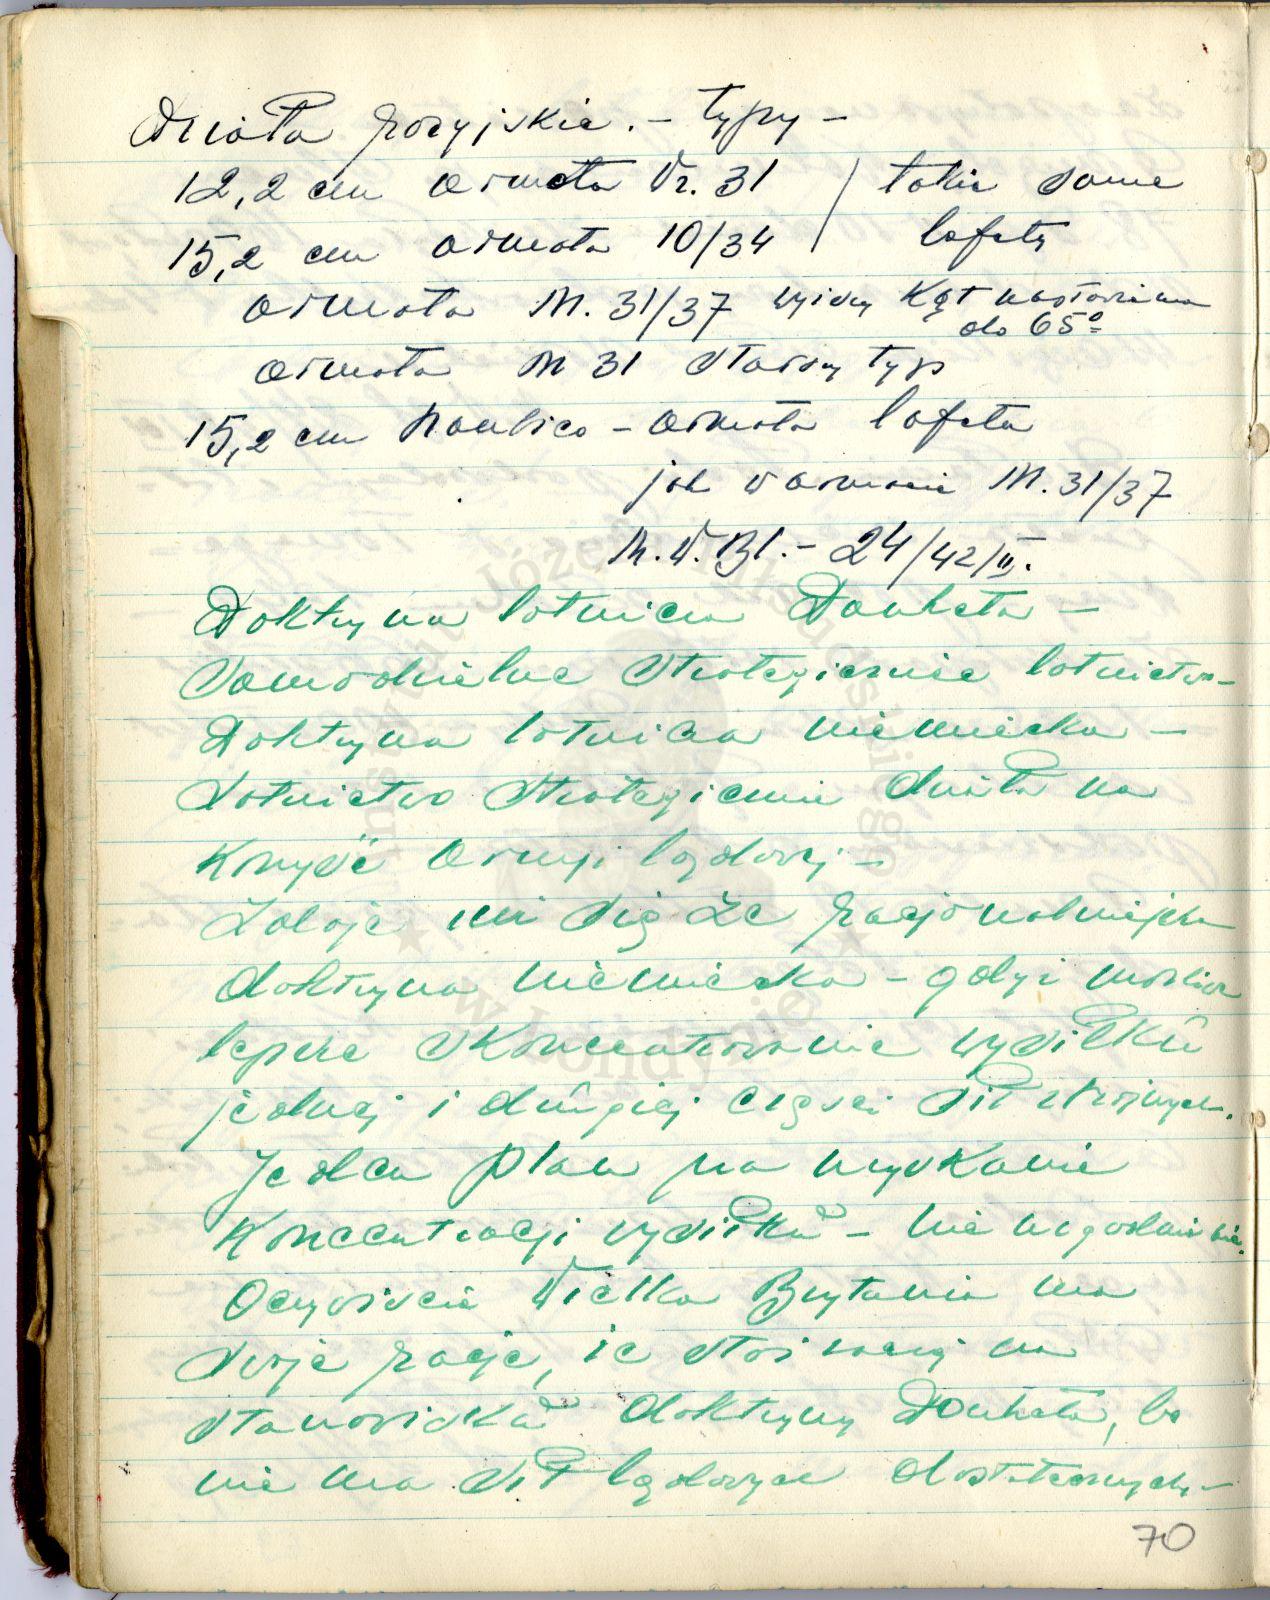 Działa rosyjskie. - typy -
12,2 cm armata Wz. 31 / takie same
15,2 cm armata 10/34 / lafety
armata M. 31/37 wyższy kąt nastawienia
do 65°
armata M 31 starszy typ
15,2 cm haubico - armata lafeta
jak w armacie M. 31/37
M.W.Bl. - 24/42/II.
Doktryna lotnicza Douheta -
Samodzielne strategicznie lotnictwo -
Doktryna lotnicza niemiecka -
Lotnictwo strategicznie działa na
korzyść armji lądowej -
Zdaje mi się że racjonalniejsza
doktryna niemiecka - gdyż możliwe
lepsze skoncentrowanie wysiłku
jednej i drugiej części sił zbrojnych.
Jeden plan na uzyskanie
koncentracji wysiłku - nie uzgodnienie.
Oczywiście Wielka Brytania ma
swoje racje, że stoi na
stanowisku doktryny Douheta, bo
nie ma sił lądowych dostatecznych -
70
Instytut Józefa Piłsudskiego
w Londynie